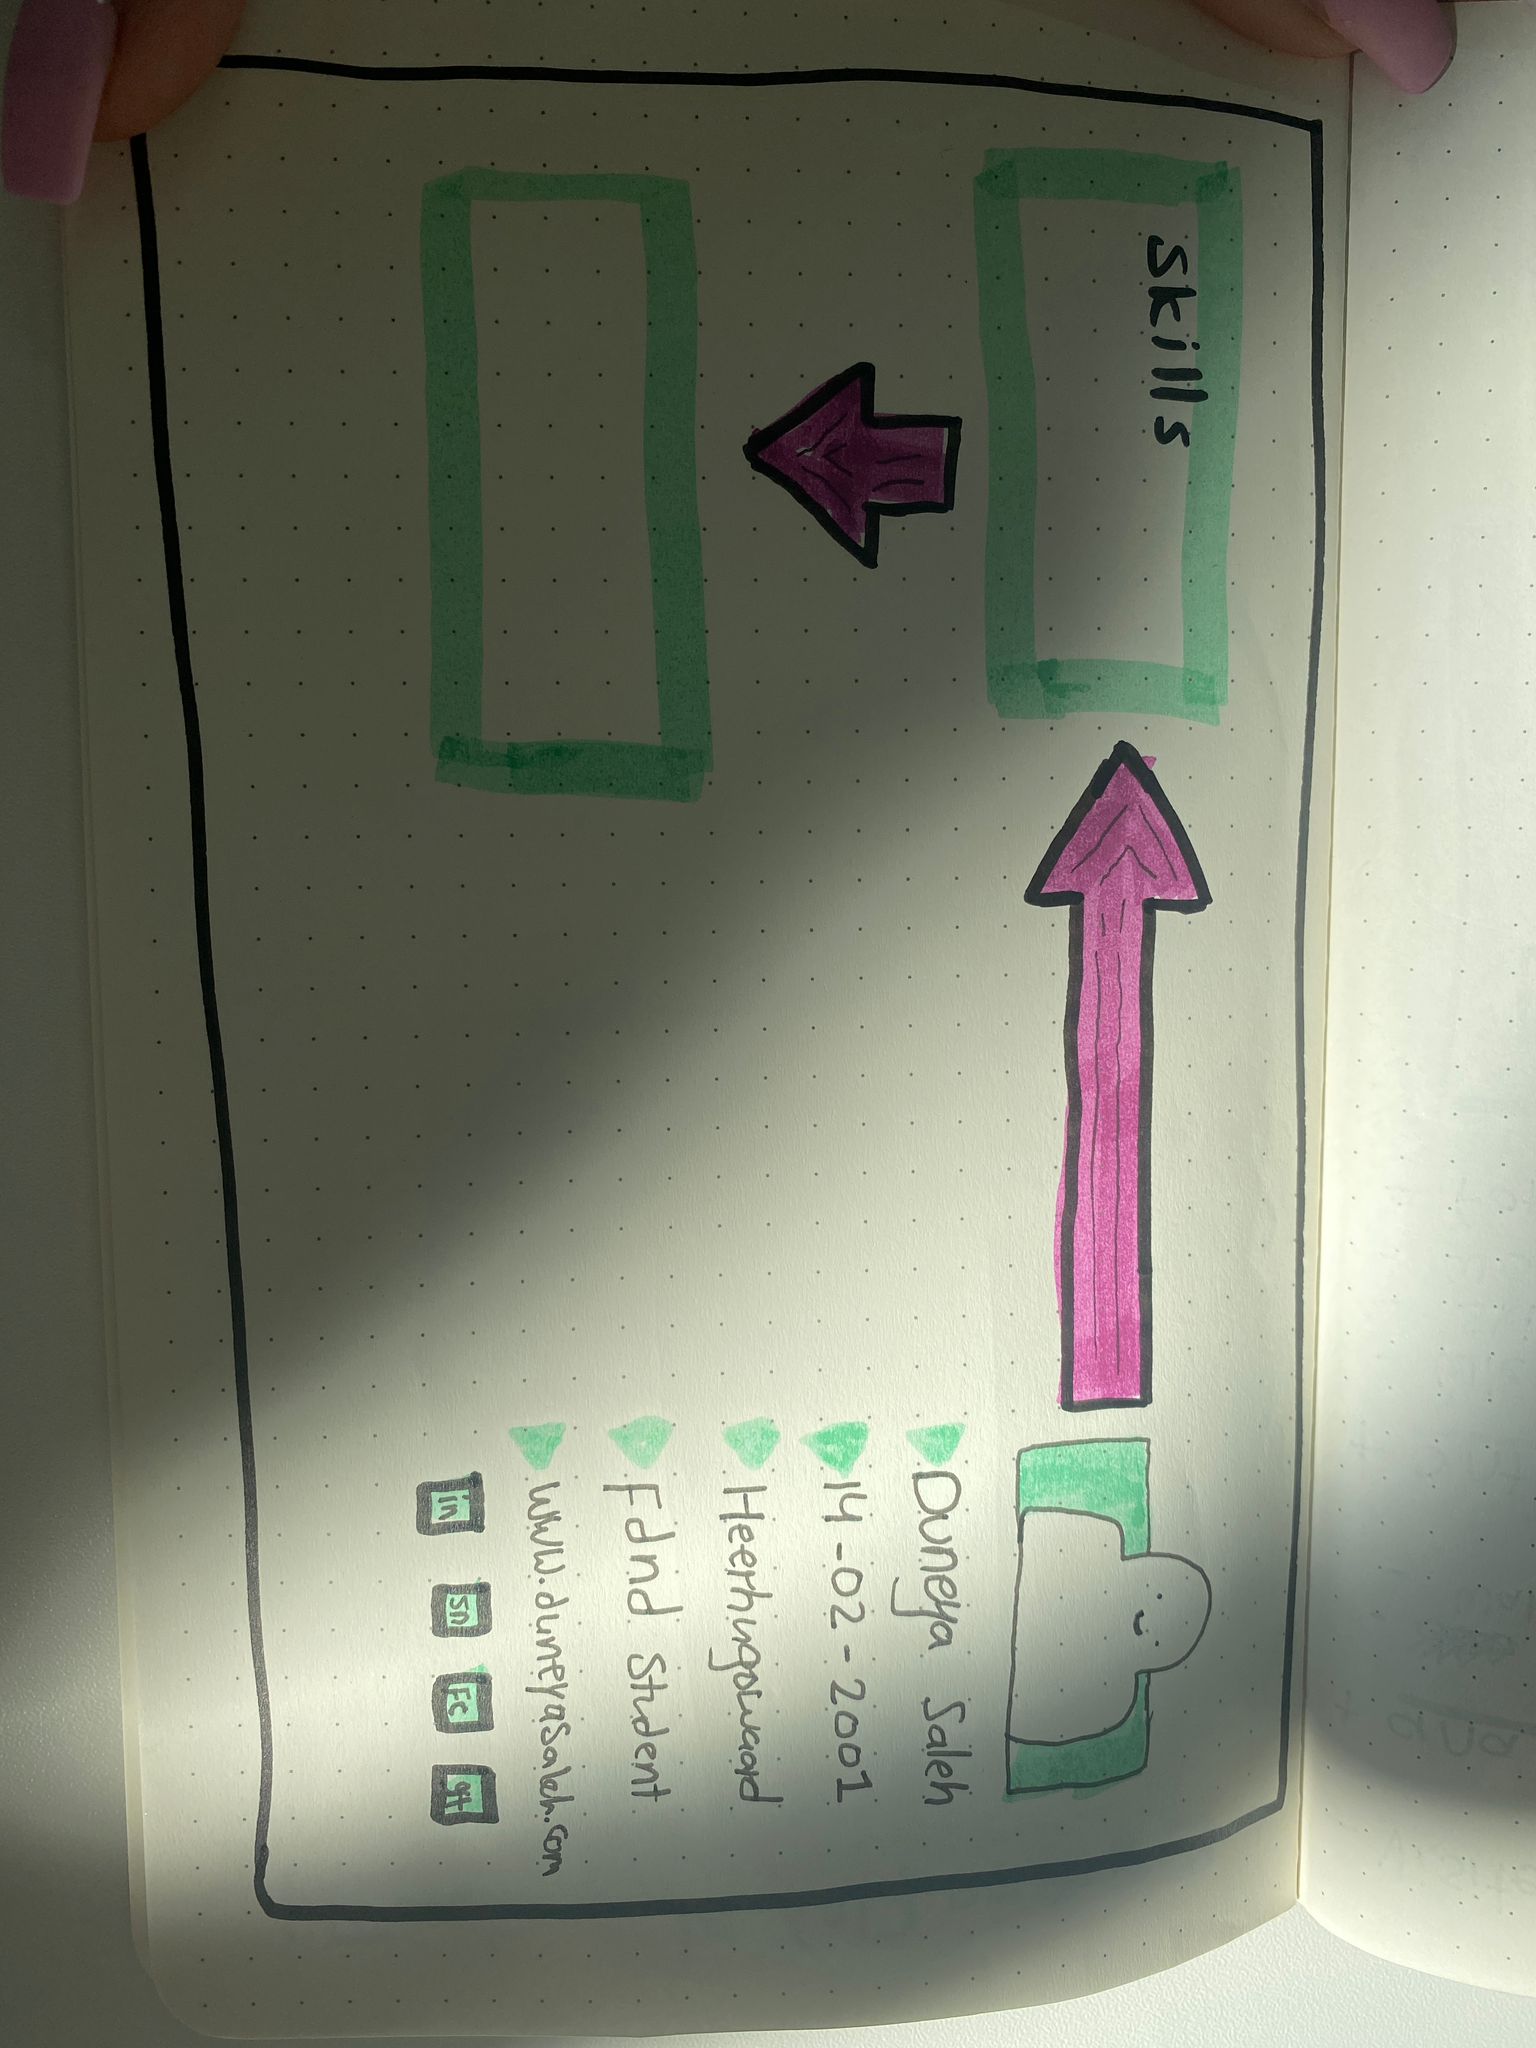 Skills
Duneya Saleh
14-02-2001
Heerhugowaard
Fdnd Student
www.duneyasaleh.com
in
sn
Fc